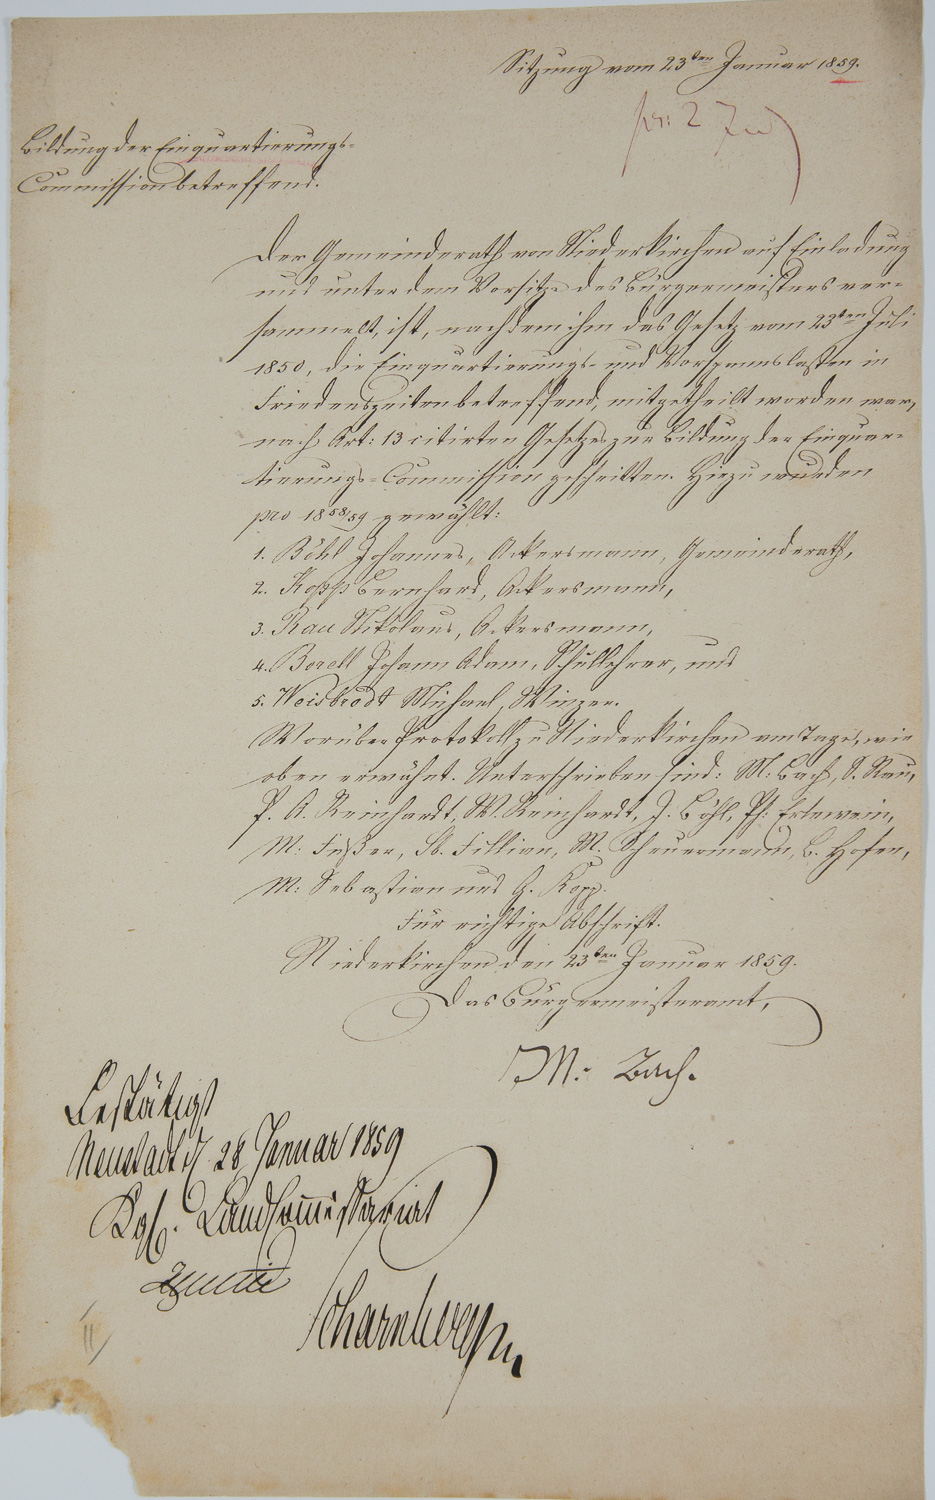 Sitzung vom 23ten Januar 1859.
Bildung der Einquartierungs-
Commission betreffend.
Der Gemeinderath von Niederkirchen auf Einladung
und unter dem Vorsitze des Bürgermeisters ver-
sammelt, ist, nachdem ihm das Gesetz vom 23ten Juli
1850, die Einquartierungs- und Vorspannslasten in
Friedenszeiten betreffend, mitgetheilt worden war,
nach Art: 13 citirten Gesetzes zur Bildung der Einquar-
tierungs-Commission geschritten. Hiezu wurden
pro 1858/59 gewählt:
1. Böhl Johannes, Ackersmann, Gemeinderath,
2. Kopp Bernhard, Ackersmann,
3. Rau Nikolaus, Ackersmann,
4. Borell Johann Adam, Schullehrer, und
5. Weisbrodt Michael, Winzer.
Worüber Protokoll zu Niederkirchen am Tage, wie
oben erwähnt. Unterschrieben sind: M: Bach, S. Rau,
P. A. Reinhardt, W. Reinhardt, J. Böhl, Ph: Ertewein,
M: Fußer, St. Fillian, M. Scheuermann, B. Hofen,
M: Sebastian und G. Kopp.
Für richtige Abschrift.
Niederkirchen den 23ten Januar 1859.
Das Bürgermeisteramt,
M: Bach.
Bestätigt
Neustadt d. 28 Januar 1859
Kgl. Landcommissariat